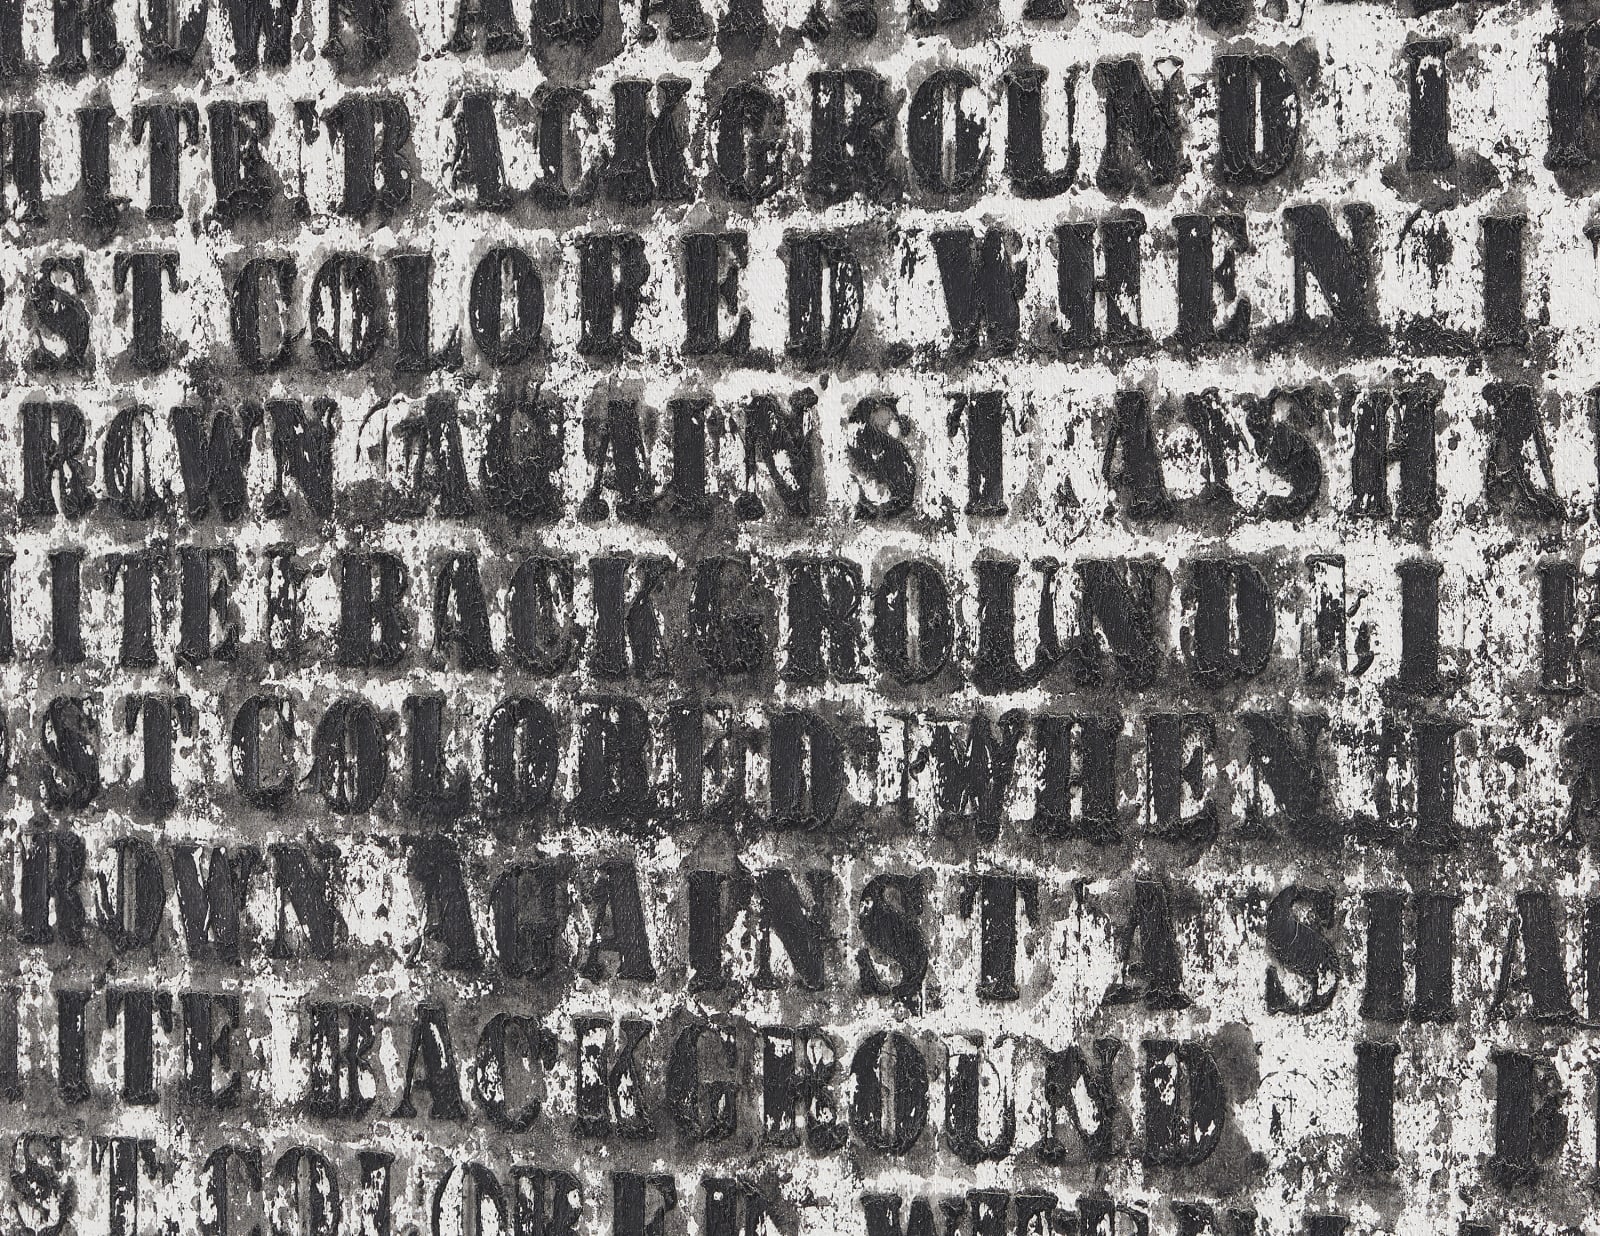 ROWN AGAINST
ITE BACKGROUND I
ST COLORED WHEN I
ROWN AGAINST A SHA
ITE BACKGROUND I
ST COLORED WHEN I
ROWN AGAINST A SHA
ITE BACKGROUND I
ST COLORED WHEN